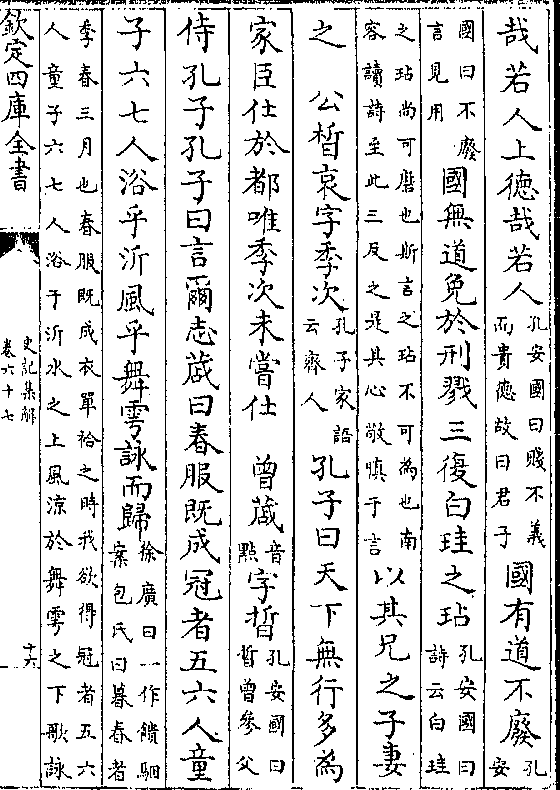 哉若人上德哉若人孔安國曰賤不義而貴德故曰君子國有道不廢孔安
國曰不廢言見用國無道免於刑戮三復白珪之玷孔安國曰詩云白珪
之玷尚可磨也斯言之玷不可為也南容讀詩至此三反之是其心敬慎于言以其兄之子妻
之　公晳哀字季次孔子家語云齊人孔子曰天下無行多為
家臣仕於都唯季次未嘗仕　曾蒧音點字晳孔安國曰晳曾參父
侍孔子孔子曰言爾志蒧曰春服既成冠者五六人童
子六七人浴乎沂風乎舞雩詠而歸徐廣曰一作饋駰案包氏曰暮春者
季春三月也春服既成衣單袷之時我欲得冠者五六人童子六七人浴于沂水之上風涼於舞雩之下歌詠
欽定四庫全書
史記集解
卷六十七
十六